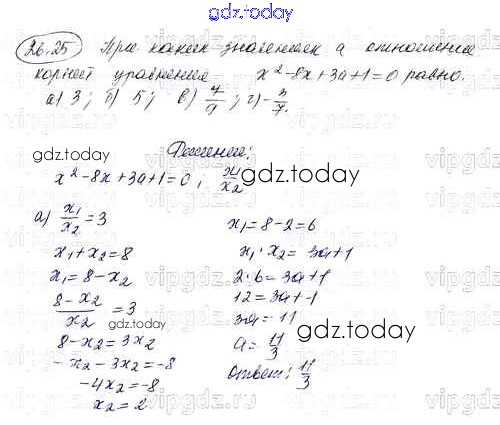 gdz.today
26.25 При каких значениях a отношение
корней уравнения x²-8x+3a+1=0 равно.
а) 3; б) 5; в) 7/9; г) -3/7.
Решение:
gdz.today
x²-8x+3a+1=0; x₁/x₂
gdz.today
а) x₁/x₂=3
x₁+x₂=8
x₁=8-x₂
8-x₂/x₂=3
gdz.today
8-x₂=3x₂
-x₂-3x₂=-8
-4x₂=-8
x₂=2
x₁=8-2=6
x₁·x₂=3a+1
2·6=3a+1
12=3a+1
3a=11
gdz.today
a=11/3
ответ: 11/3
vipgdz.ru